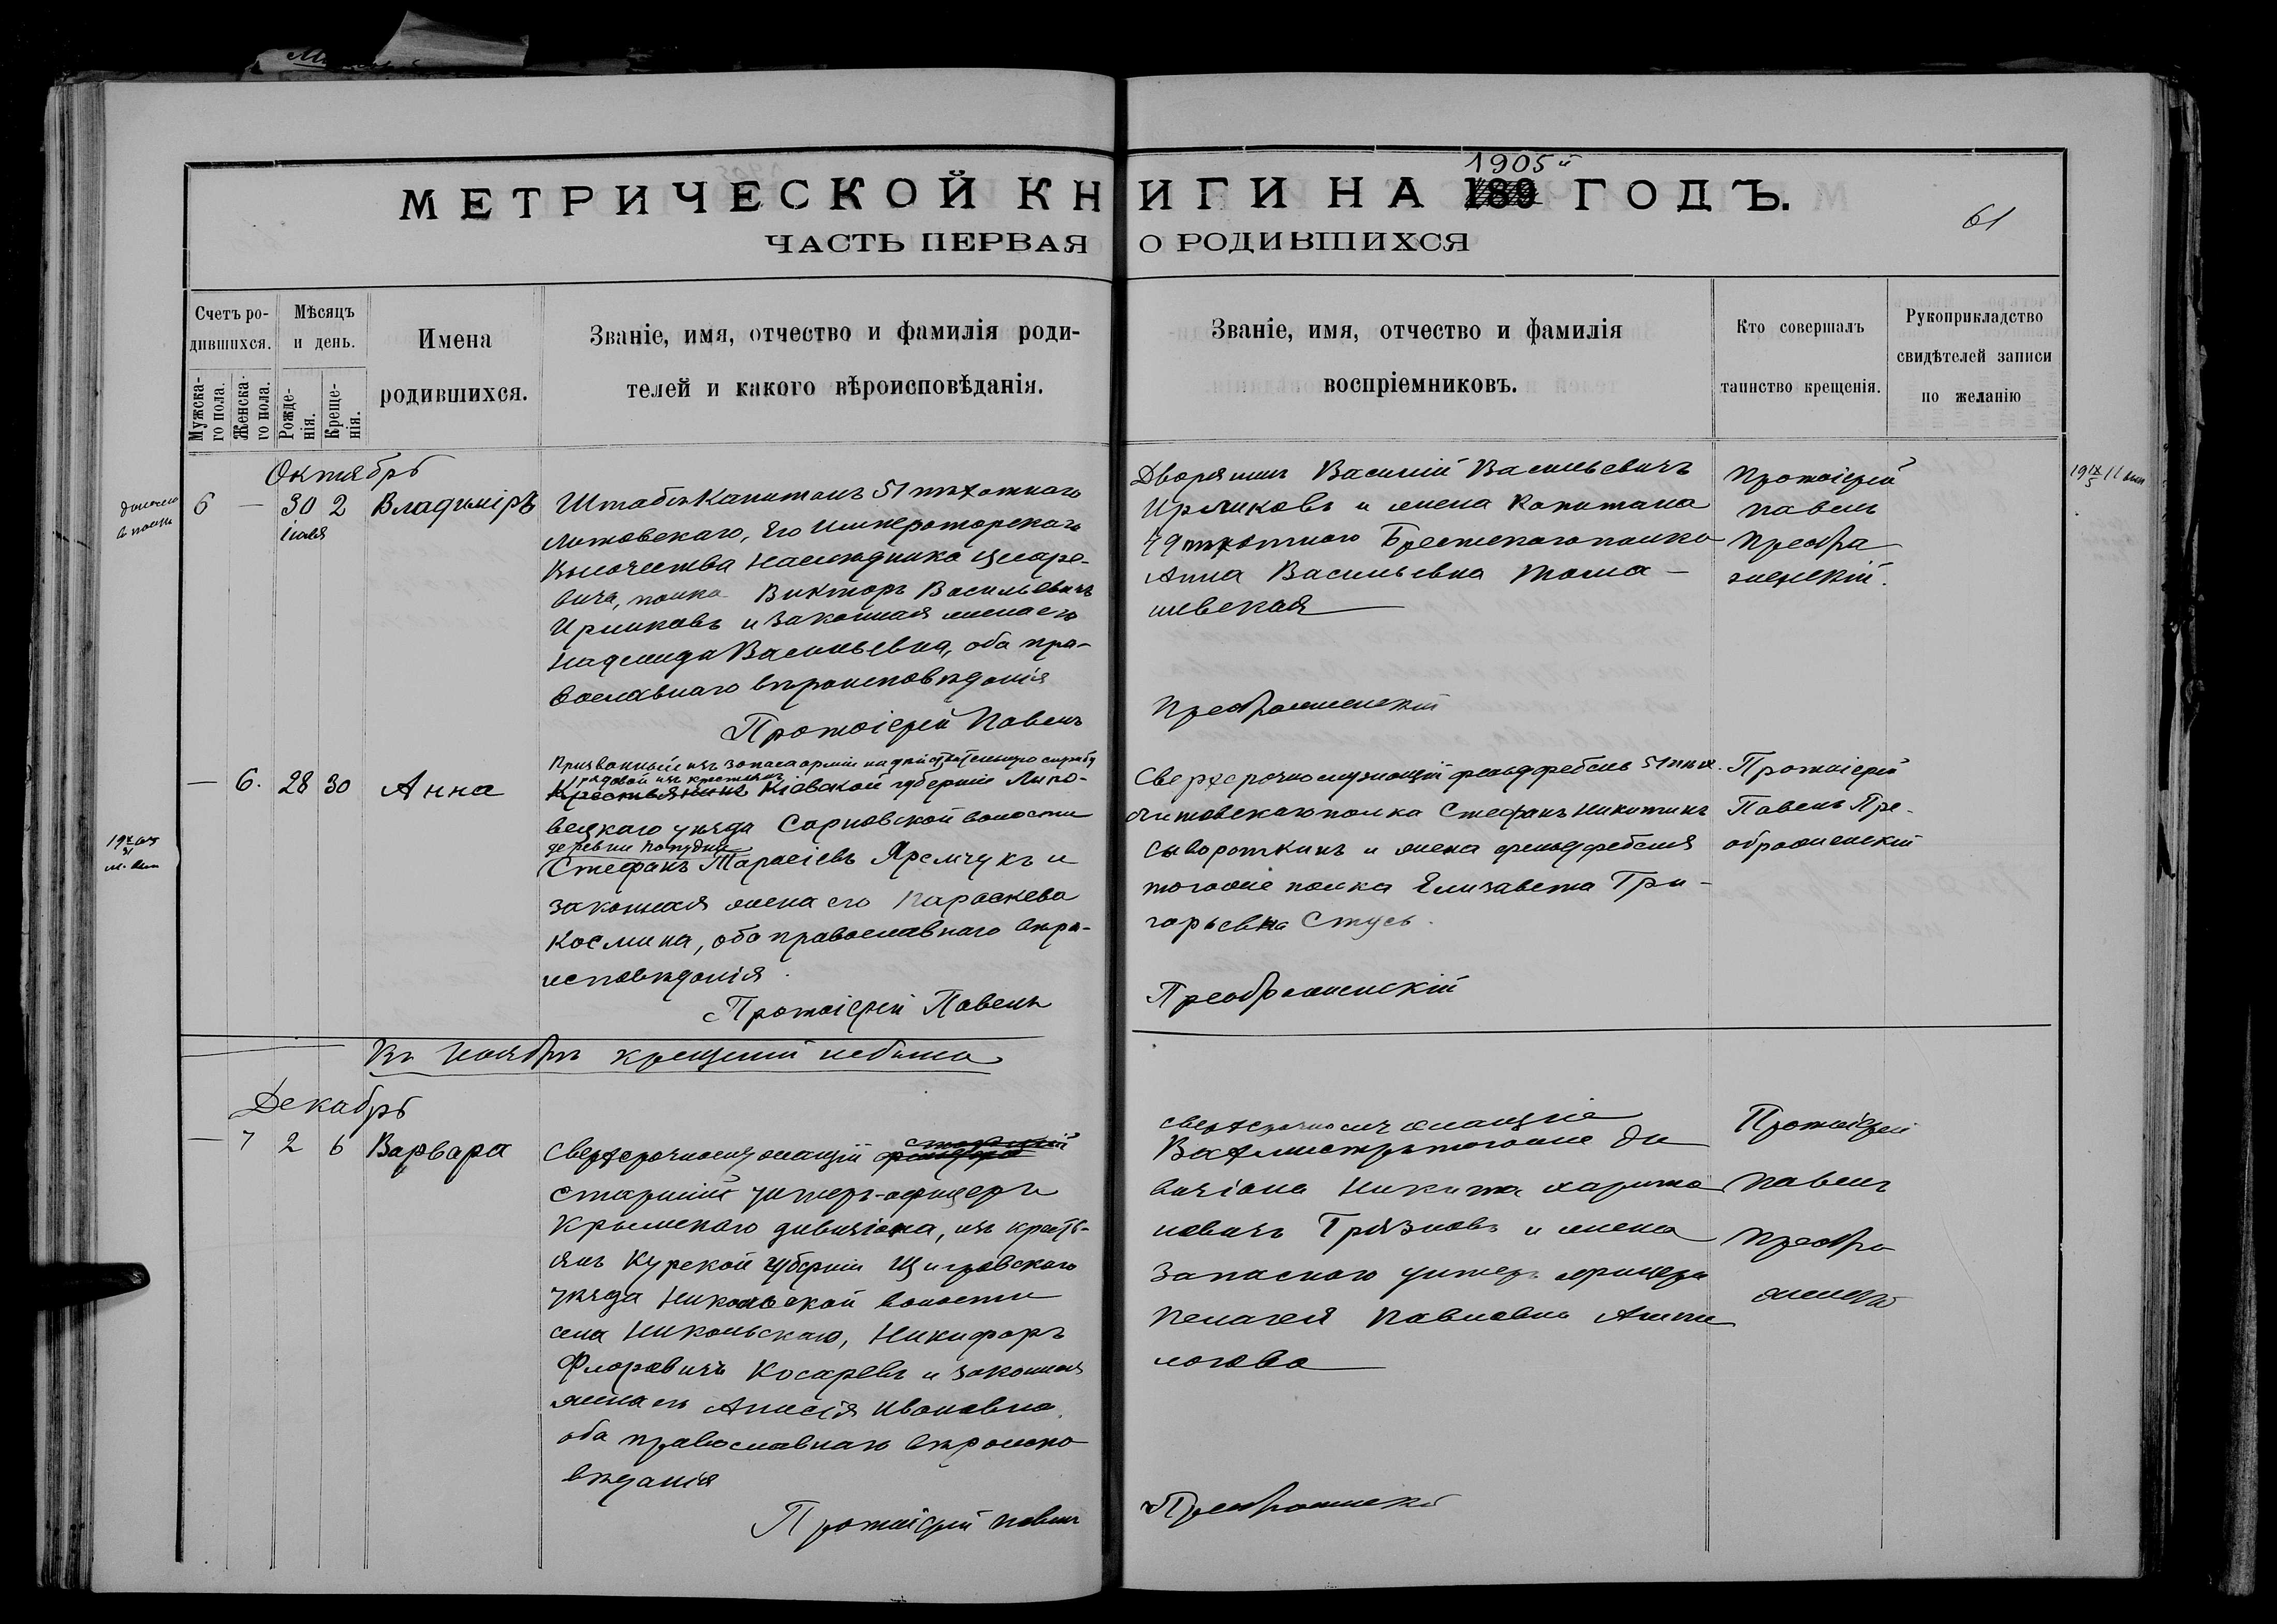 1905й
МЕТРИЧЕСКОЙ КНИГИ НА 189 ГОДЪ.
61
ЧАСТЬ ПЕРВАЯ О РОДИВШИХСЯ
Счетъ ро-
дившихся.
Мужска-
го пола.
Женска-
го пола.
Мѣсяцъ
и день.
Рожде-
нія.
Креще-
нія.
Имена
родившихся.
Званіе, имя, отчество и фамилія роди-
телей и какого вѣроисповѣданія.
Званіе, имя, отчество и фамилія
воспріемниковъ.
Кто совершалъ
таинство крещенія.
Рукоприкладство
свидѣтелей записи
по желанію
Октябрь
6 — 30 2 Владиміръ
іюля
Штабсъ Капитанъ 51 пѣхотнаго
Литовскаго, Его Императорскаго
Высочества Наслѣдника Цесаре-
вича, полка Викторъ Васильевичъ
и законная жена его
Надежда Васильевна, оба пра-
вославнаго вѣроисповѣданія
Протоіерей Павелъ
Дворянинъ Василій Васильевичъ
и жена Капитана
49 пѣхотнаго Брестскаго полка
Анна Васильевна Тома-
шевская
Преображенскій
Протоіерей
Павелъ
Преобра
женскій.
— 6. 28 30 Анна
Призванный изъ запаса арміи на дѣйствительную службу
рядовой изъ крестьянъ
Крестьянинъ Кіевской губерніи Липо-
вецкаго уѣзда Сарновской волости
деревни Попудни
Стефанъ Тарасіевъ Яремчукъ и
законная жена его Параскева
Космина, оба православнаго вѣро-
исповѣданія.
Протоіерей Павелъ
Сверхсрочнослужащій фельдфебель 51 пѣх.
Литовскаго полка Стефанъ Никитинъ
Сывороткинъ и жена фельдфебеля
тогоже полка Елизавета Гри-
горьевна Стусь.
Преображенскій
Протоіерей
Павелъ Пре-
ображенскій
Въ Ноябрѣ крещеній небыло
Декабрь
— 7 2 6 Варвара
Сверхсрочнослужащій
старшій унтеръ-офицеръ
Крымскаго дивизіона, изъ кресть-
янъ Курской губерніи Щигровскаго
уѣзда Никольской волости
села Никольскаго, Никифоръ
Флоровичъ Косаревъ и законная
жена его Анисія Ивановна,
оба православнаго вѣроиспо
вѣданія
Протоіерей Павелъ
сверхсрочнослужащіе
Вахмистръ тогоже ди
визіона Никита Харито
новичъ Грязновъ и жена
Запаснаго унтеръ офицера
Пелагея Павловна Анти
логова
Преображенскій
Протоіерей
Павелъ
Преобра
женскій